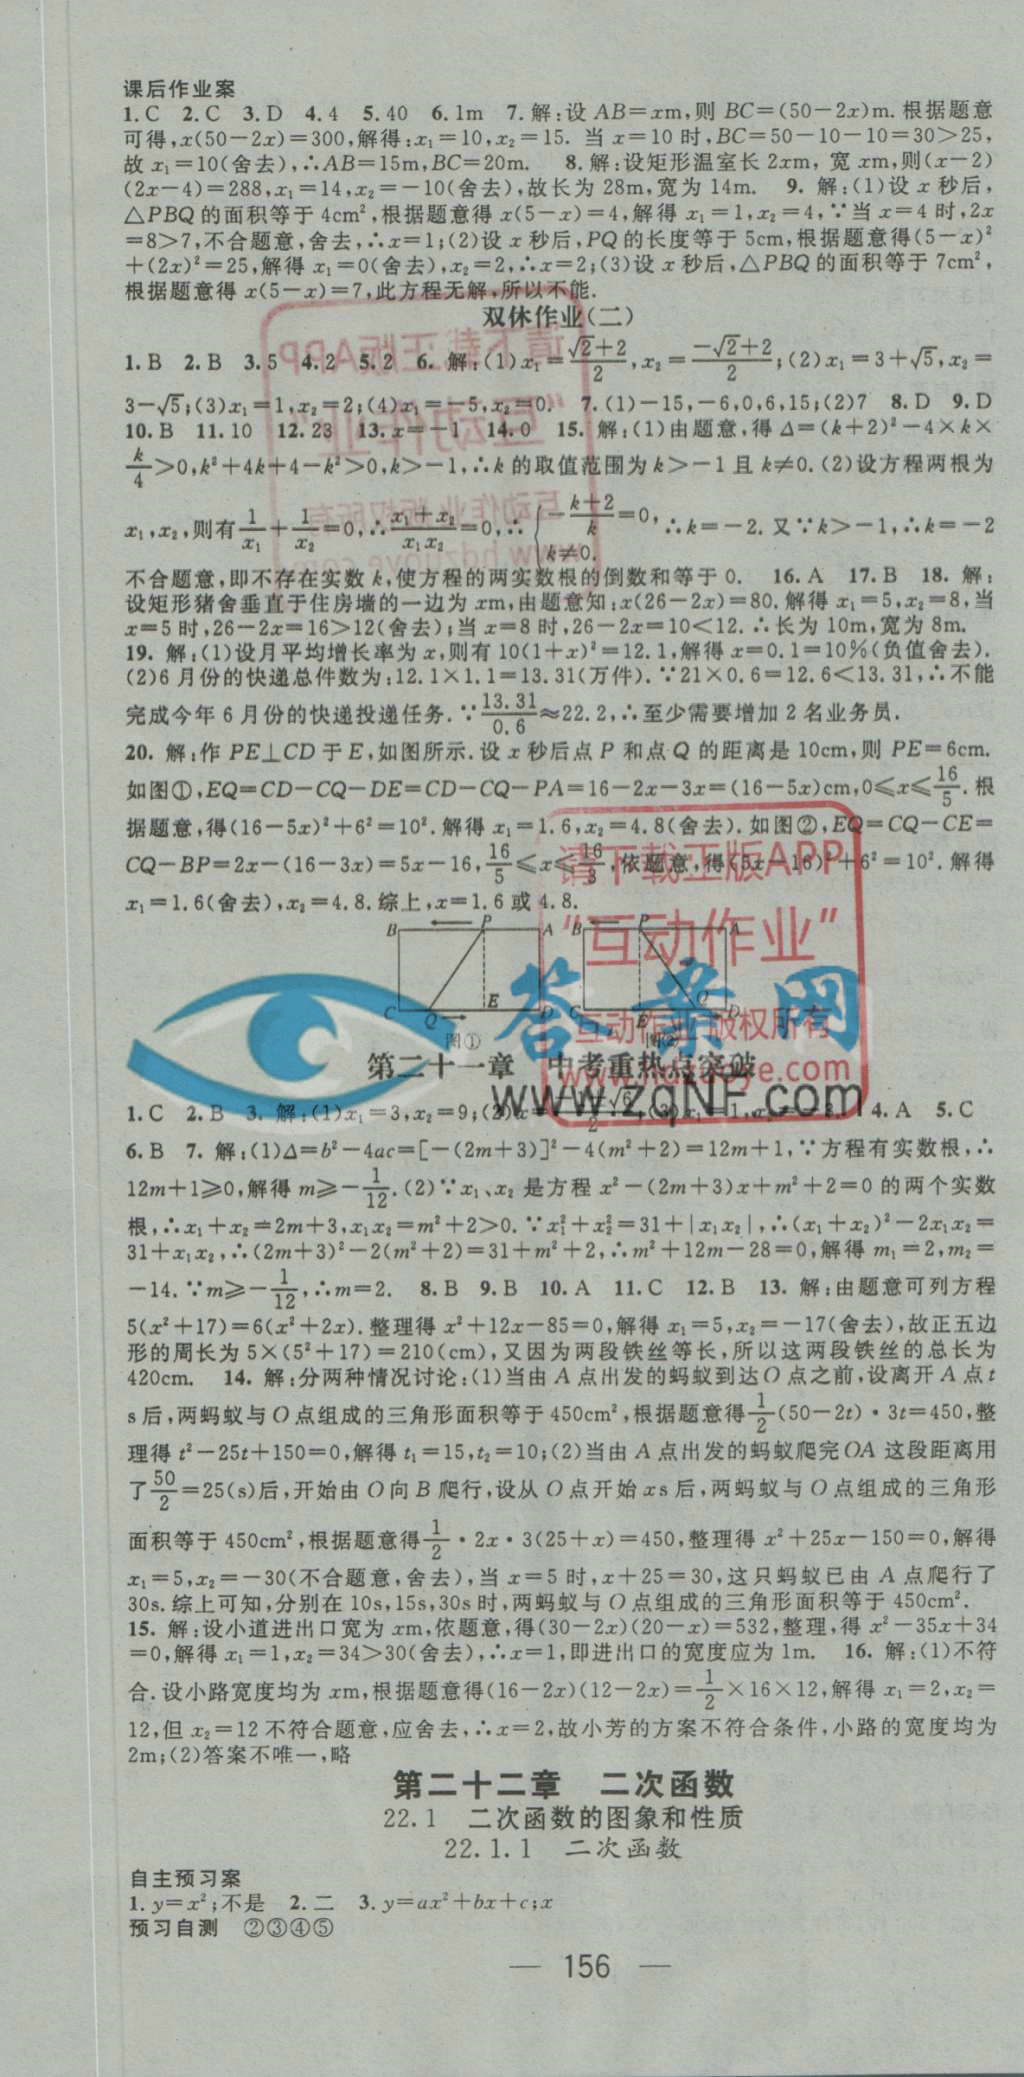 课后作业案
1.C 2.C 3.D 4.4 5.40 6.1m 7.解:设 AB=xm,则 BC=(50-2x)m.根据题意
可得,x(50-2x)=300,解得:x₁=10,x₂=15. 当 x=10 时,BC=50-10-10=30>25,
故 x₁=10(舍去),∴AB=15m,BC=20m. 8.解:设矩形温室长 2xm, 宽 xm,则(x-2)
(2x-4)=288,x₁=14,x₂=-10(舍去),故长为 28m,宽为 14m. 9. 解:(1)设 x 秒后,
△PBQ 的面积等于 4cm²,根据题意得 x(5-x)=4,解得 x₁=1,x₂=4,∵当 x=4 时,2x
=8>7,不合题意,舍去,∴x=1;(2)设 x 秒后,PQ 的长度等于 5cm,根据题意得(5-x)²
+(2x)²=25,解得 x₁=0(舍去),x₂=2,∴x=2;(3)设 x 秒后,△PBQ 的面积等于 7cm²,
根据题意得 x(5-x)=7,此方程无解,所以不能.
双休作业(二)
1.B 2.B 3.5 4.2 5.2 6. 解:(1)x₁=(√2+2)/2,x₂=(-√2+2)/2;(2)x₁=3+√5,x₂=
3-√5;(3)x₁=1,x₂=2;(4)x₁=-5,x₂=0. 7.(1)-15,-6,0,6,15;(2)7 8.D 9.D
10.B 11.10 12.23 13.x=-1 14.0 15. 解:(1)由题意,得 Δ=(k+2)²-4×k×
k/4>0,k²+4k+4-k²>0,k>-1,∴k 的取值范围为 k>-1 且 k≠0.(2)设方程两根为
x₁,x₂,则有 1/x₁+1/x₂=0,∴(x₁+x₂)/(x₁x₂)=0,∴{-(k+2)/k=0, k≠0. ∴k=-2.又∵k>-1,∴k=-2
不合题意,即不存在实数 k,使方程的两实数根的倒数和等于 0. 16.A 17.B 18. 解:
设矩形猪舍垂直于住房墙的一边为 xm,由题意知:x(26-2x)=80.解得 x₁=5,x₂=8,当
x=5 时,26-2x=16>12(舍去);当 x=8 时,26-2x=10<12.∴长为 10m,宽为 8m.
19. 解:(1)设月平均增长率为 x,则有 10(1+x)²=12.1,解得 x=0.1=10%(负值舍去).
(2)6 月份的快递总件数为:12.1×1.1=13.31(万件).∵21×0.6=12.6<13.31,∴不能
完成今年 6 月份的快递投递任务.∵13.31/0.6≈22.2,∴至少需要增加 2 名业务员.
20. 解:作 PE⊥CD 于 E,如图所示.设 x 秒后点 P 和点 Q 的距离是 10cm,则 PE=6cm.
如图①,EQ=CD-CQ-DE=CD-CQ-PA=16-2x-3x=(16-5x)cm,0≤x≤16/5.根
据题意,得(16-5x)²+6²=10².解得 x₁=1.6,x₂=4.8(舍去).如图②,EQ=CQ-CE=
CQ-BP=2x-(16-3x)=5x-16,16/5≤x≤16/3,依题意,得(5x-16)²+6²=10².解得
x₁=1.6(舍去),x₂=4.8.综上,x=1.6 或 4.8.
B P A B P A
C Q E D C E Q D
图① 图②
请下载正版APP
“互动作业”
互动作业 版权所有
答案网
www.zqNF.com
第二十一章 中考重热点突破
1.C 2.B 3. 解:(1)x₁=3,x₂=9; 4.A 5.C
6.B 7. 解:(1)Δ=b²-4ac=[-(2m+3)]²-4(m²+2)=12m+1,∵方程有实数根,∴
12m+1≥0,解得 m≥-1/12.(2)∵x₁、x₂ 是方程 x²-(2m+3)x+m²+2=0 的两个实数
根,∴x₁+x₂=2m+3,x₁x₂=m²+2>0.∵x₁²+x₂²=31+|x₁x₂|,∴(x₁+x₂)²-2x₁x₂=
31+x₁x₂,∴(2m+3)²-2(m²+2)=31+m²+2,∴m²+12m-28=0,解得 m₁=2,m₂=
-14.∵m≥-1/12,∴m=2. 8.B 9.B 10.A 11.C 12.B 13. 解:由题意可列方程
5(x²+17)=6(x²+2x).整理得 x²+12x-85=0,解得 x₁=5,x₂=-17(舍去),故正五边
形的周长为 5×(5²+17)=210(cm),又因为两段铁丝等长,所以这两段铁丝的总长为
420cm. 14. 解:分两种情况讨论:(1)当由 A 点出发的蚂蚁到达 O 点之前,设离开 A 点 t
s 后,两蚂蚁与 O 点组成的三角形面积等于 450cm²,根据题意得 1/2(50-2t)·3t=450,整
理得 t²-25t+150=0,解得 t₁=15,t₂=10;(2)当由 A 点出发的蚂蚁爬完 OA 这段距离用
了 50/2=25(s)后,开始由 O 向 B 爬行,设从 O 点开始 xs 后,两蚂蚁与 O 点组成的三角形
面积等于 450cm²,根据题意得 1/2·2x·3(25+x)=450,整理得 x²+25x-150=0,解得
x₁=5,x₂=-30(不合题意,舍去),当 x=5 时,x+25=30,这只蚂蚁已由 A 点爬行了
30s.综上可知,分别在 10s,15s,30s 时,两蚂蚁与 O 点组成的三角形面积等于 450cm².
15. 解:设小道进出口宽为 xm,依题意,得(30-2x)(20-x)=532,整理,得 x²-35x+34
=0,解得 x₁=1,x₂=34>30(舍去),∴x=1,即进出口的宽度应为 1m. 16. 解:(1)不符
合.设小路宽度均为 xm,根据题意得(16-2x)(12-2x)=1/2×16×12,解得 x₁=2,x₂=
12,但 x₂=12 不符合题意,应舍去,∴x=2,故小芳的方案不符合条件,小路的宽度均为
2m;(2)答案不唯一,略
第二十二章 二次函数
22.1 二次函数的图象和性质
22.1.1 二次函数
自主预习案
1.y=x²;不是 2.二 3.y=ax²+bx+c;x
预习自测 ②③④⑤
— 156 —